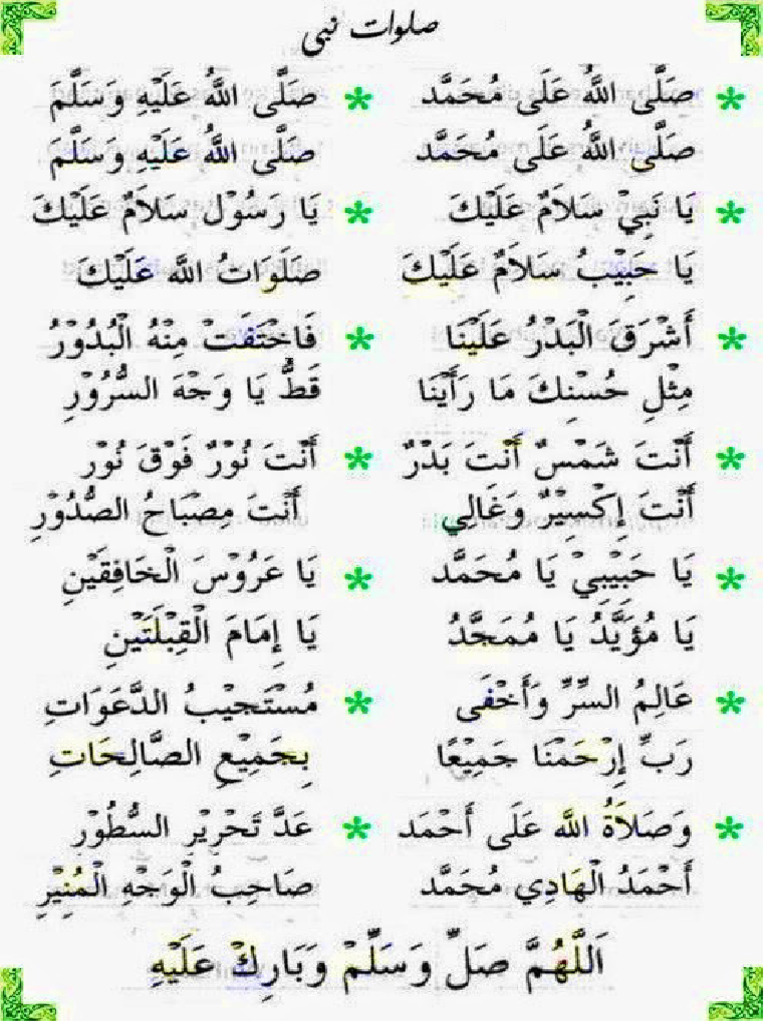 صلوات نبي
صَلَّى اللهُ عَلَى مُحَمَّد * صَلَّى اللهُ عَلَيْهِ وَسَلَّمَ
صَلَّى اللهُ عَلَى مُحَمَّد صَلَّى اللهُ عَلَيْهِ وَسَلَّمَ
يَا نَبِيْ سَلاَمٌ عَلَيْكَ * يَا رَسُوْل سَلاَمٌ عَلَيْكَ
يا حَبِيْبُ سَلاَمٌ عَلَيْكَ صَلَوَاتُ اللهِ عَلَيْكَ
أَشْرَقَ الْبَدْرُ عَلَيْنَا * فَاخْتَفَتْ مِنْهُ الْبُدُوْرُ
مِثْلِ حُسْنِكَ مَا رَأَيْنَا قَطُّ يَا وَجْهَ السُّرُوْرِ
أَنْتَ شَمْسٌ أَنْتَ بَدْرٌ * أَنْتَ نُوْرٌ فَوْقَ نُوْر
أَنْتَ إِكْسِيْرٌ وَغَالِي أَنْتَ مِصْبَاحُ الصُّدُوْرِ
يَا حَبِيْبِيْ يَا مُحَمَّد * يَا عَرُوْسَ الْخَافِقَيْنِ
يَا مُؤَيَّدُ يَا مُمَجَّدُ يَا إِمَامَ الْقِبْلَتَيْنِ
عَالِمُ السِّرِّ وَأَخْفَى * مُسْتَجِيْبُ الدَّعَوَاتِ
رَبِّ إِرْحَمْنَا جَمِيْعًا بِجَمِيْعِ الصَّالِحَاتِ
وَصَلاَةُ اللهِ عَلَى أَحْمَد * عَدَّ تَحْرِيْرِ السُّطُوْر
أَحْمَدُ الْهَادِي مُحَمَّد صَاحِبُ الْوَجْهِ الْمُنِيْرِ
اَللَّهُمَّ صَلِّ وَسَلِّمْ وَبَارِكْ عَلَيْهِ